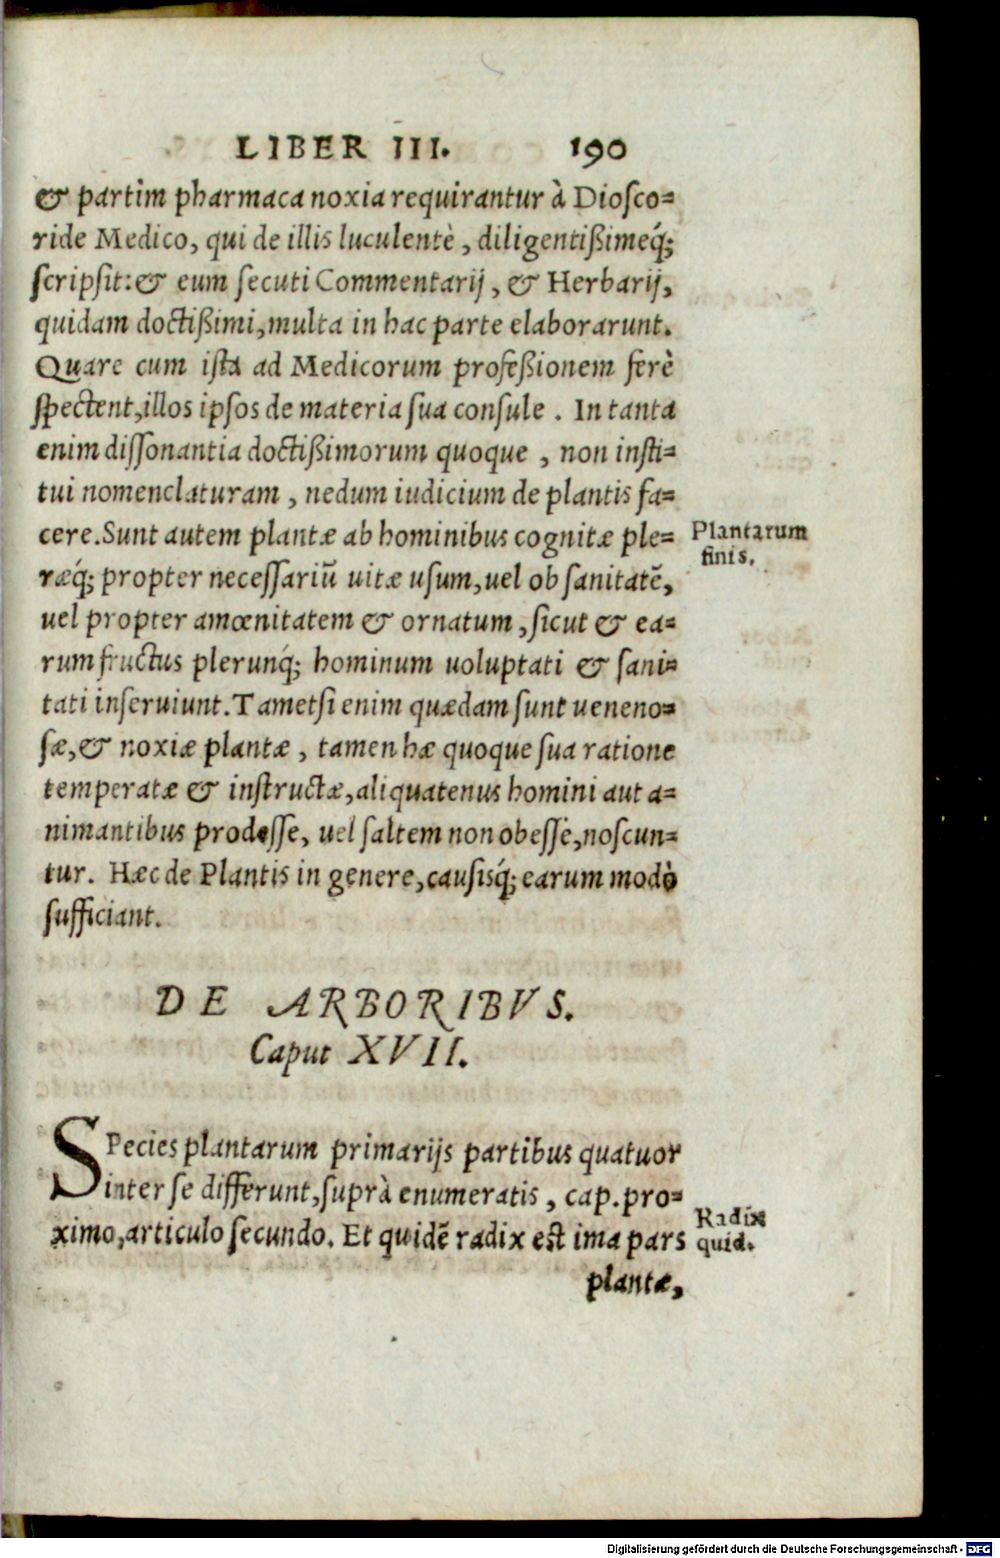 LIBER III. 190
& partìm pharmaca noxia requirantur à Dioſco-
ride Medico, qui de illis luculentè, diligentißimeq́;
ſcripſit: & eum ſecuti Commentarij, & Herbarij,
quidam doctißimi, multa in hac parte elaborarunt.
Quare cum iſta ad Medicorum profeßionem ferè
ſpectent, illos ipſos de materia ſua conſule. In tanta
enim diſſonantia doctißimorum quoque, non inſti-
tui nomenclaturam, nedum iudicium de plantis fa-
cere. Sunt autem plantæ ab hominibus cognitæ ple-
Plantarum
finis.
ræq́; propter neceſſariũ uitæ uſum, uel ob ſanitatẽ,
uel propter amœnitatem & ornatum, ſicut & ea-
rum fructus plerunq́; hominum uoluptati & ſani-
tati inſeruiunt. Tametſi enim quædam ſunt ueneno-
ſæ, & noxiæ plantæ, tamen hæ quoque ſua ratione
temperatæ & inſtructæ, aliquatenus homini aut a-
nimantibus prodeſſe, uel ſaltem non obeſſe, noſcun-
tur. Hæc de Plantis in genere, cauſisq́; earum modò
ſufficiant.
DE ARBORIBVS.
Caput XVII.
SPecies plantarum primarijs partibus quatuor
inter ſe differunt, ſuprà enumeratis, cap. pro-
ximo, articulo ſecundo. Et quidẽ radix eſt ima pars
Radix
quid.
plantæ,
Digitalisierung gefördert durch die Deutsche Forschungsgemeinschaft - DFG